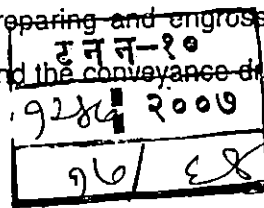 reparing and engross
ट न न-१०
nd the conveyance d
२००७
१७/